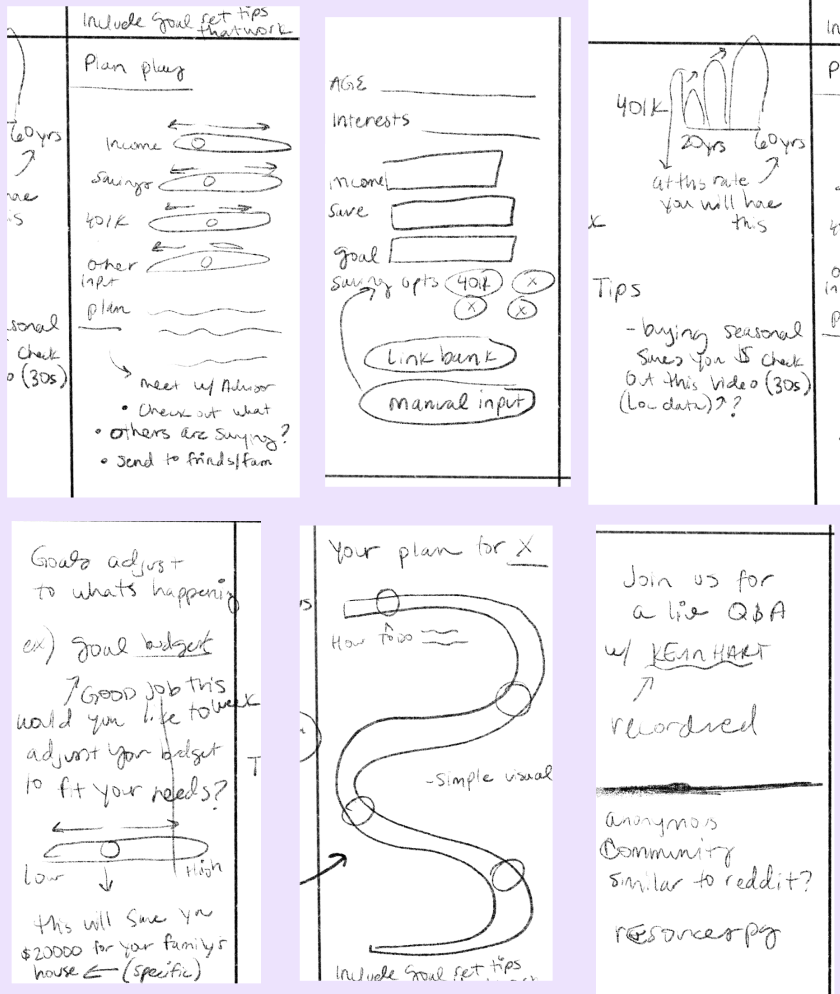 Include goal set tips
that work
Plan play
60yrs
Income
Savings
401K
other
input
plan
sonal
check
o (30s)
meet w/ Advisor
• Check out what
• others are saying?
• send to frinds/fam
AGE
Interests
income
Save
goal
Saving opts 401K X
X X
Link bank
manual input
In
P
401K
20yrs 60yrs
at this rate
you will have
this
Tips
- buying seasonal
saves you $ check
out this video (30s)
(Low data) ??
Goals adjust
to whats happening
ex) goal budget
GOOD job this
week
would you like to
adjust your budget
to fit your needs?
Low High
this will save you
$20000 for your family's
house ← (specific)
T
Your plan for X
How to do
- Simple visual
Include goal set tips
Join us for
a live Q&A
w/ KEVIN HART
recordred
anonymois
Community
similar to reddit?
resources pg